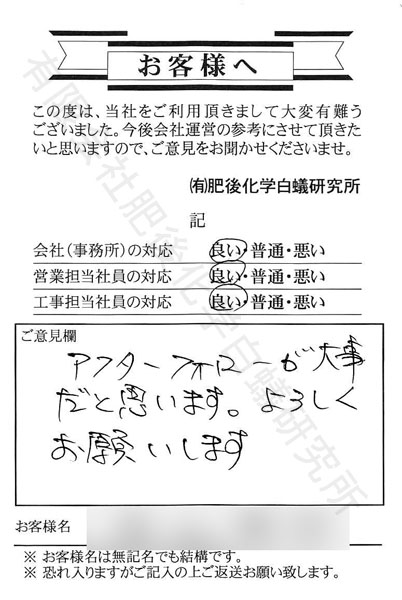 お客様へ
この度は、当社をご利用頂きまして大変有難う
ございました。今後会社運営の参考にさせて頂きた
いと思いますので、ご意見をお聞かせくださいませ。
㈲肥後化学白蟻研究所
記
会社(事務所)の対応 良い・普通・悪い
営業担当社員の対応 良い・普通・悪い
工事担当社員の対応 良い・普通・悪い
ご意見欄
アフターフォローが大事
だと思います。よろしく
お願いします
お客様名
※ お客様名は無記名でも結構です。
※ 恐れ入りますがご記入の上ご返送お願い致します。
有限会社肥後化学白蟻研究所